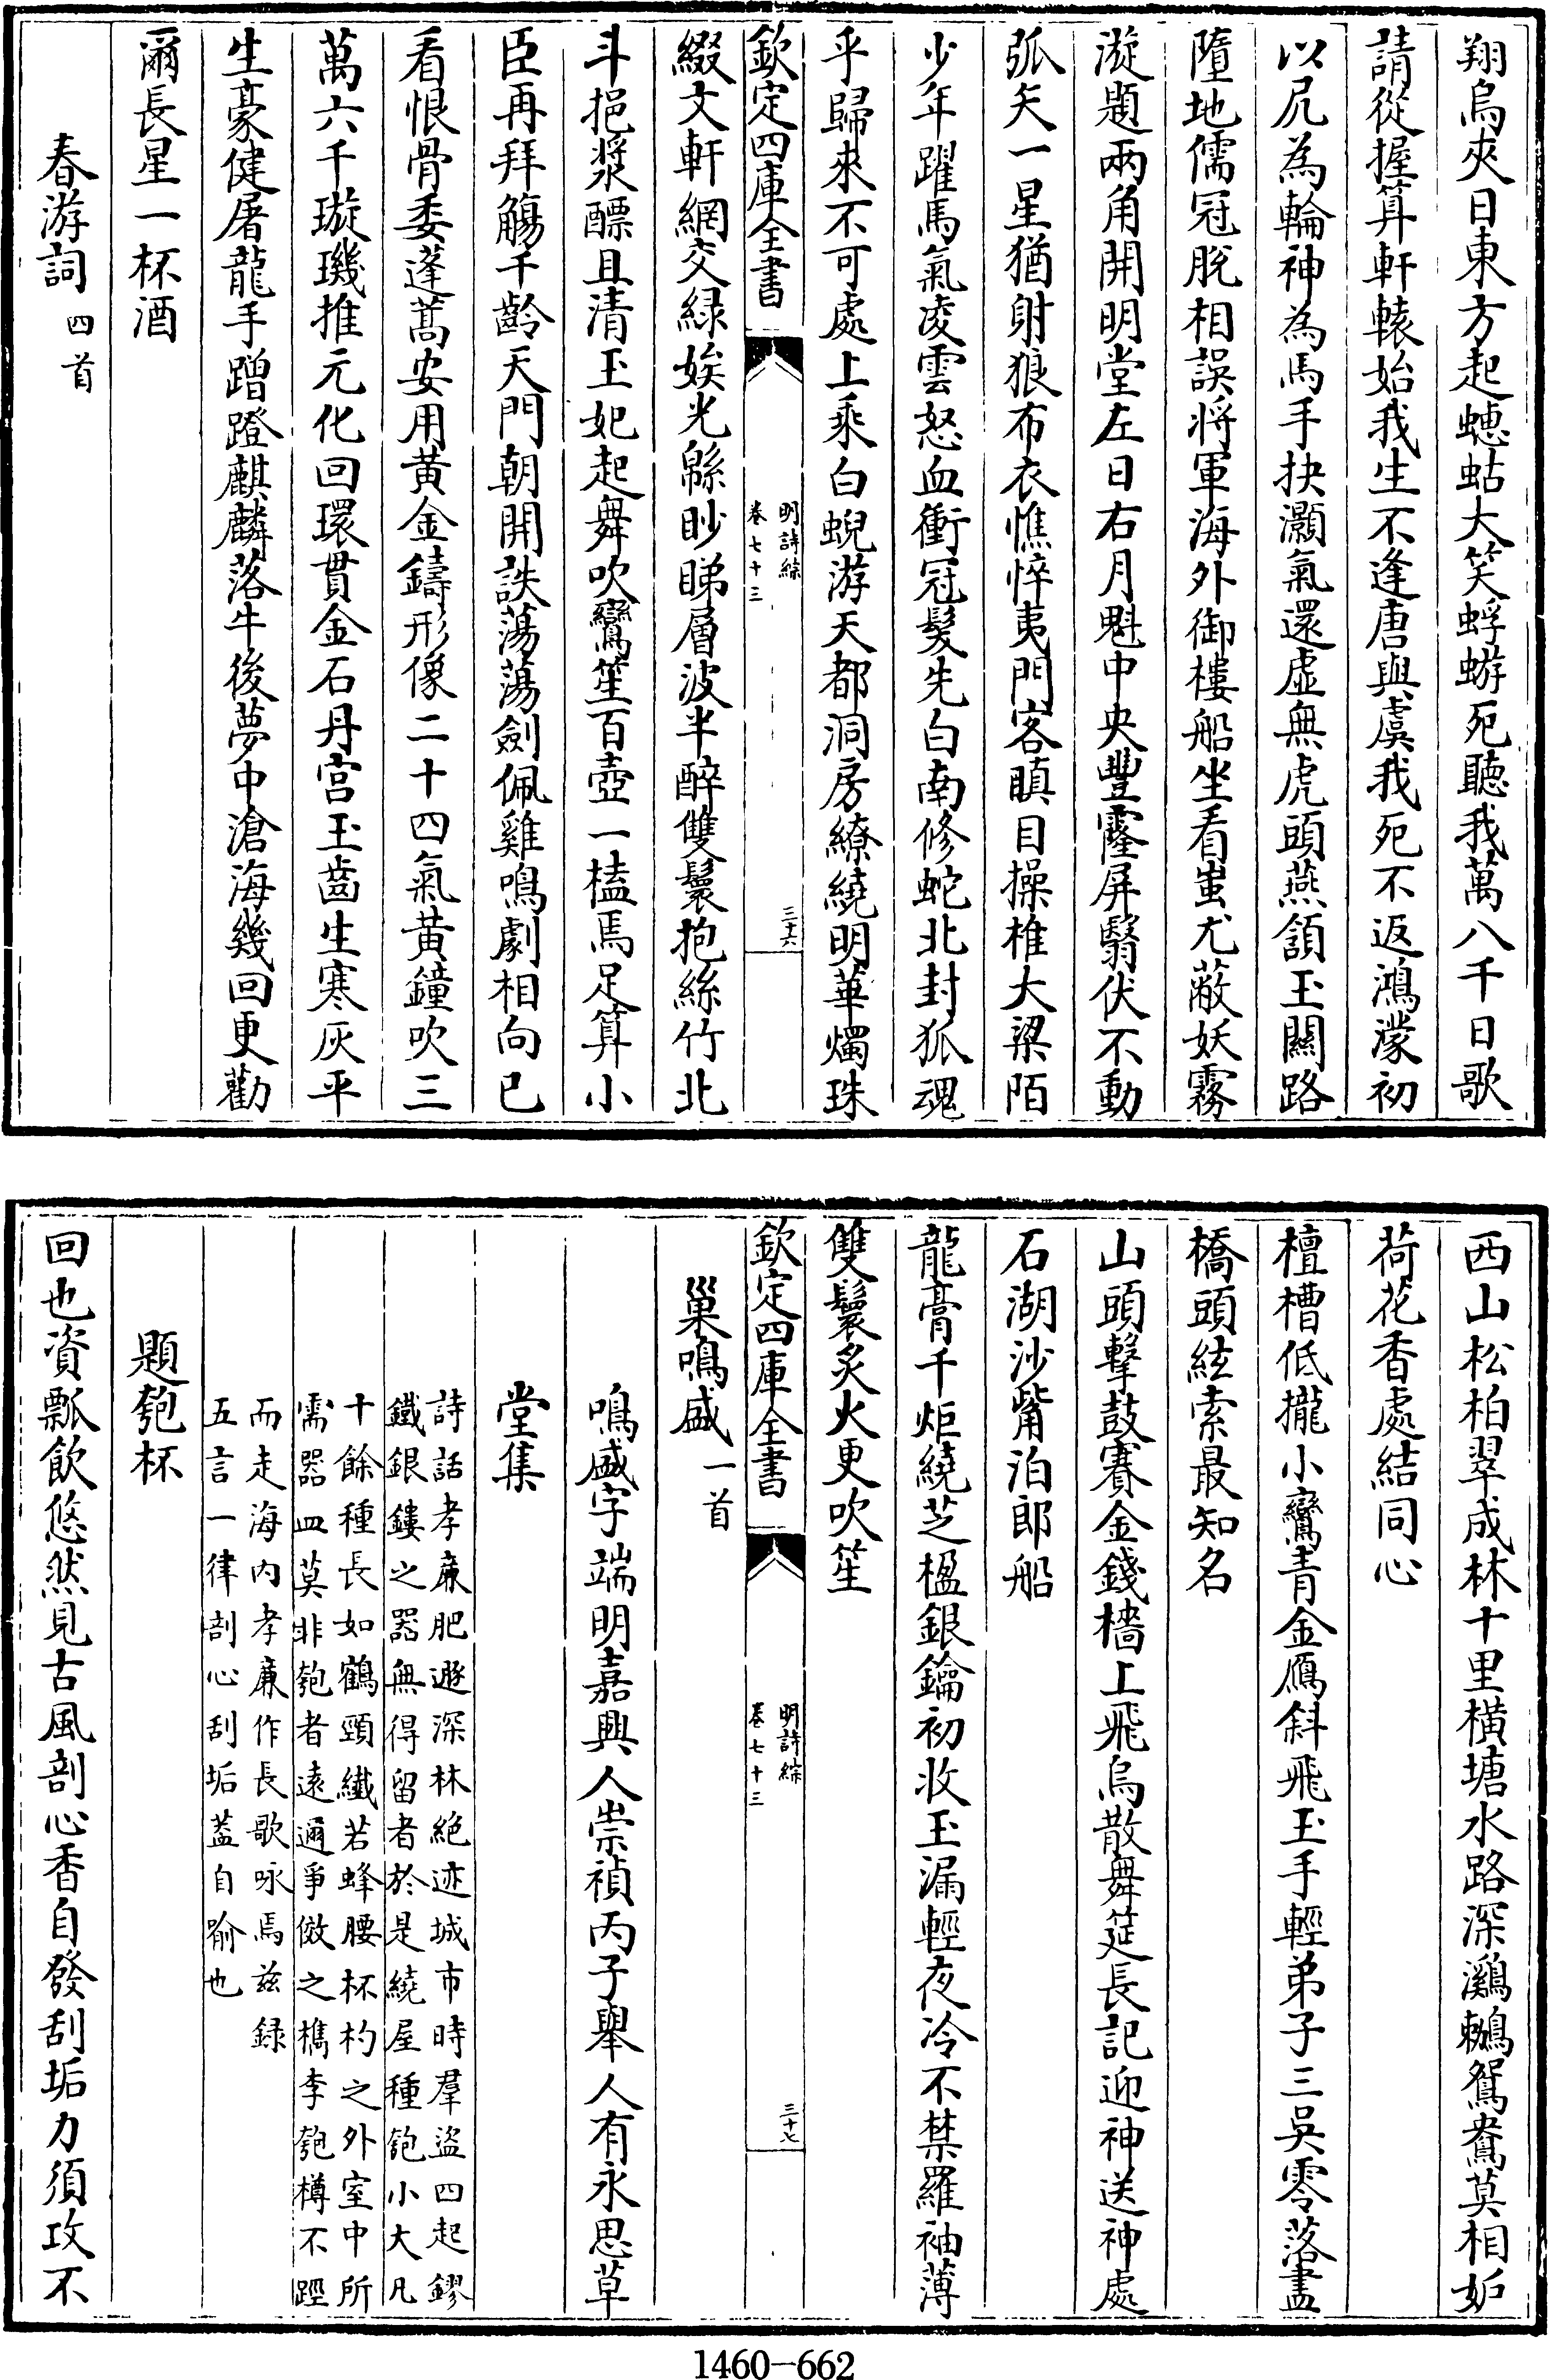 翔烏夾日東方起蟪蛄大笑蜉蝣死聽我萬八千日歌
請從握算軒轅始我生不逢唐與虞我死不返鴻濛初
以尻為輪神為馬手抉灝氣還虛無虎頭燕頷玉關路
墮地儒冠脫相誤將軍海外御樓船坐看蚩尤蔽妖霧
漩題兩角開明堂左日右月魁中央豐霳屏翳伏不動
弧矢一星猶射狼布衣憔悴夷門客瞋目操椎大梁陌
少年躍馬氣凌雲怒血衝冠髮先白南修蛇北封狐魂
乎歸來不可處上乘白蜺游天都洞房繚繞明華燭珠
欽定四庫全書
明詩綜
卷七十三
三十六
綴文軒網交綠娭光緜眇睇層波半醉雙鬟抱絲竹北
斗挹漿醥且清玉妃起舞吹鸞笙百壺一榼焉足算小
臣再拜觴千齡天門朝開詄蕩蕩劍佩雞鳴劇相向已
看恨骨委蓬蒿安用黃金鑄形像二十四氣黃鐘吹三
萬六千璇璣推元化回環貫金石丹宮玉齒生寒灰平
生豪健屠龍手蹭蹬麒麟落牛後夢中滄海幾回更勸
爾長星一杯酒
春游詞四首
西山松柏翠成林十里橫塘水路深鸂鶒鴛鴦莫相妒
荷花香處結同心
檀槽低攏小鸞青金雁斜飛玉手輕弟子三吳零落盡
橋頭絃索最知名
山頭擊鼓賽金錢檣上飛烏散舞筵長記迎神送神處
石湖沙觜泊郎船
龍膏千炬繞芝楹銀鑰初收玉漏輕夜冷不禁羅袖薄
雙鬟炙火更吹笙
欽定四庫全書
明詩綜
卷七十三
三十七
巢鳴盛一首
鳴盛字端明嘉興人崇禎丙子舉人有永思草
堂集
詩話孝廉肥遯深林絶迹城市時羣盜四起鏐
鐵銀鏤之器無得留者於是繞屋種匏小大凡
十餘種長如鶴頸纖若蜂腰杯杓之外室中所
需器皿莫非匏者遠邇爭傚之檇李匏樽不脛
而走海內孝廉作長歌咏焉兹録
五言一律剖心刮垢葢自喻也
題匏杯
回也資瓢飲悠然見古風剖心香自發刮垢力須攻不
1460—662